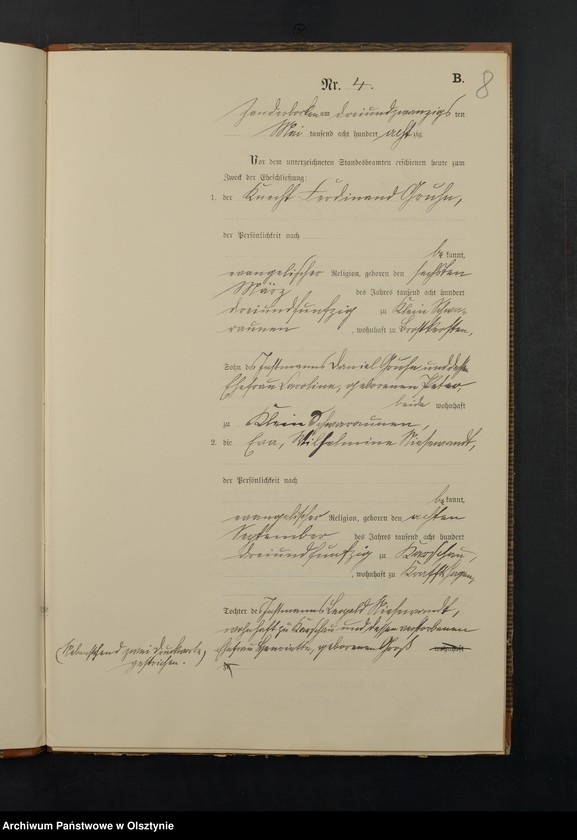 8
Nr. 4. B.
Sonderborken am dreiundzwanzigsten
Mai tausend acht hundert achtzig.
Vor dem unterzeichneten Standesbeamten erschienen heute zum
Zweck der Eheschließung:
1. der Knecht Ferdinand Gruhn,
der Persönlichkeit nach
bekannt,
evangelischer Religion, geboren den sechsten
März des Jahres tausend acht hundert
dreiundfunfzig zu Klein Schwa-
raunen, wohnhaft zu
Sohn des Instmanns Daniel Gruhn und dessen
Ehefrau Caroline, geborenen Peter
beide wohnhaft
zu Klein Schwaraunen,
2. die Eva, Wilhelmine
der Persönlichkeit nach
bekannt,
evangelischer Religion, geboren den achten
September des Jahres tausend acht hundert
dreiundfunfzig zu Karschau,
, wohnhaft zu Kraftshagen,
Tochter des Instmanns Leopold
wohnhaft zu Karschau und dessen verstorbenen
Ehefrau Henriette, geborenen Groß wohnhaft
zu
(Nebenstehend zwei Druckworte
gestrichen.)
Archiwum Państwowe w Olsztynie